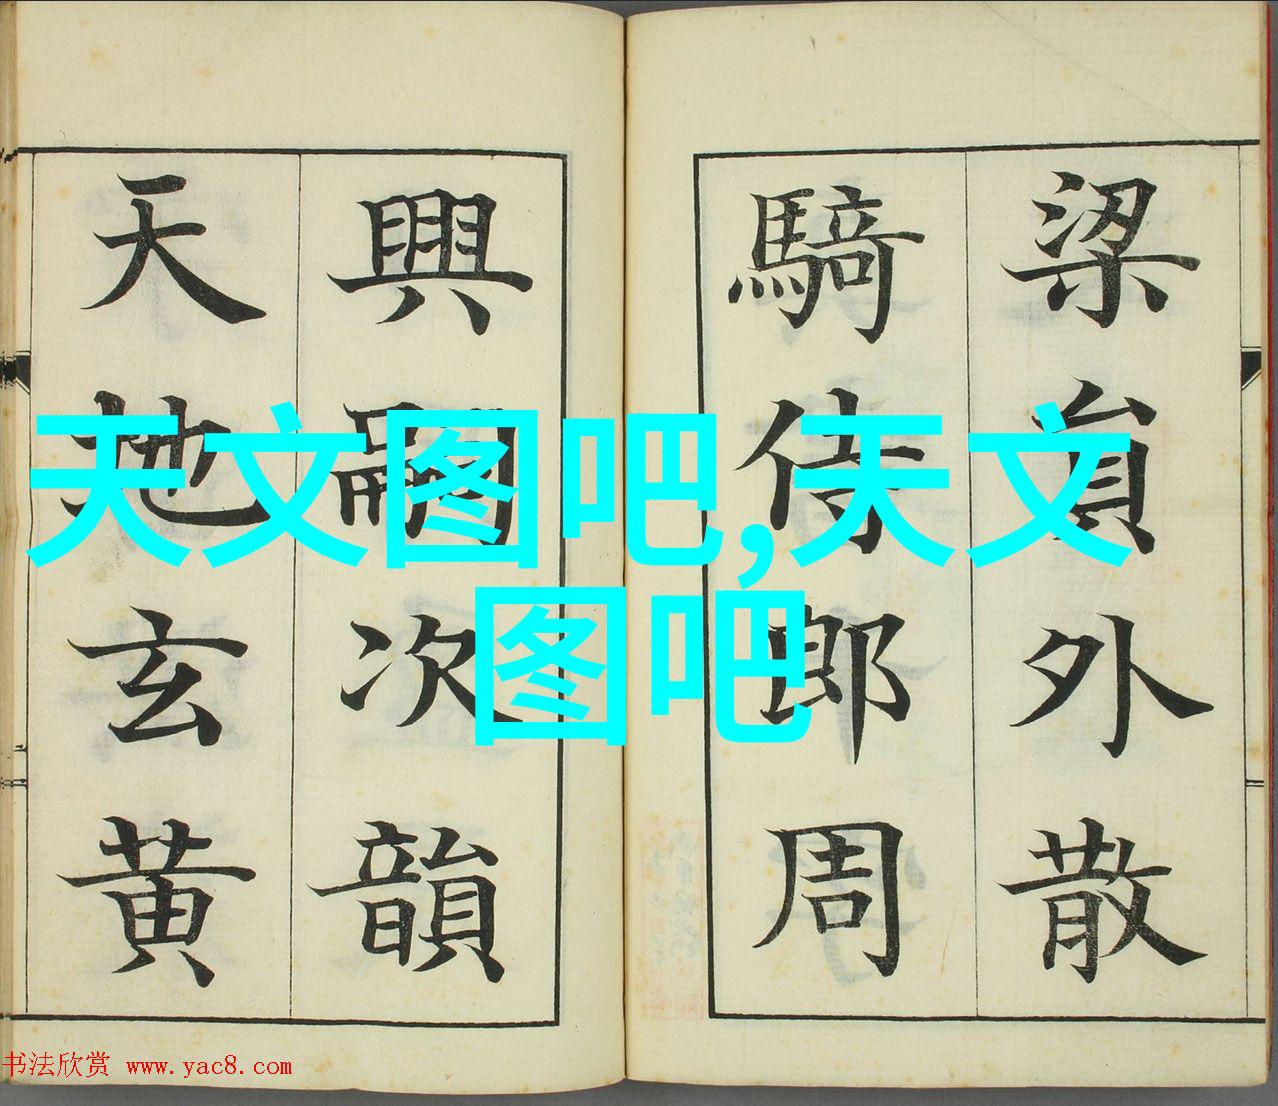 梁貟外散
騎侍郎周
興嗣次韻
天地玄黄
天文图吧,天文
图吧
书法欣赏 www.yac8.com